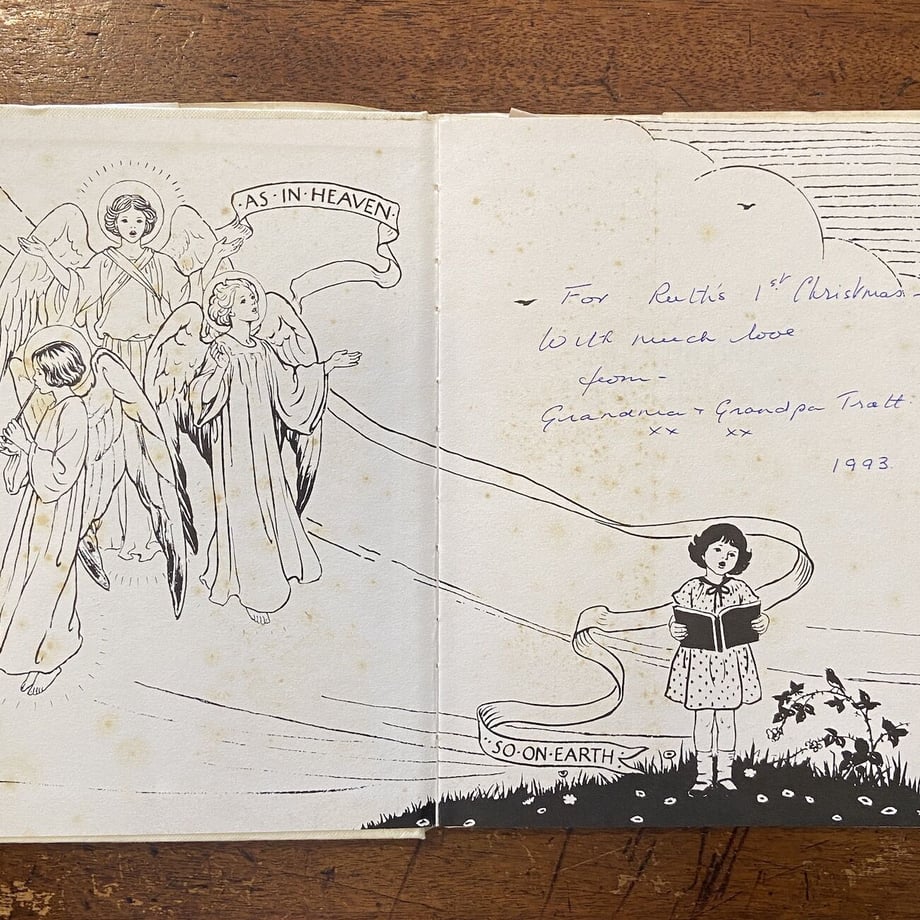 ·AS·IN·HEAVEN·
For Ruth's 1st Christmas
With much love
from -
Grandma + Grandpa Tratt.
xx xx
1993.
·SO·ON·EARTH·